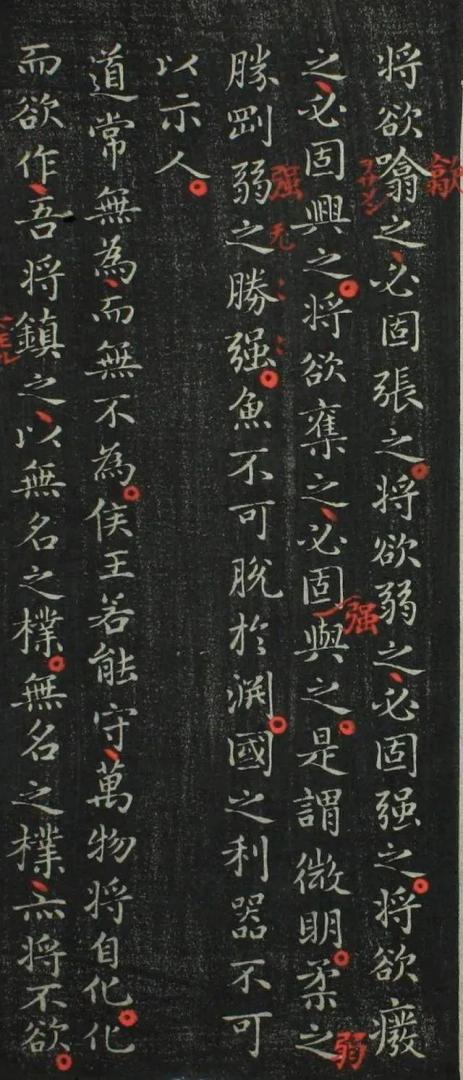 将欲噏之必固張之将欲弱之必固强之将欲癈
之必固興之将欲奪之必固與之是謂微明柔之
勝剛弱之勝强魚不可脫於渊國之利器不可
以示人
道常無為而無不為侯王若能守萬物将自化化
而欲作吾将鎮之以無名之樸無名之樸亦将不欲
强
弱
强
无